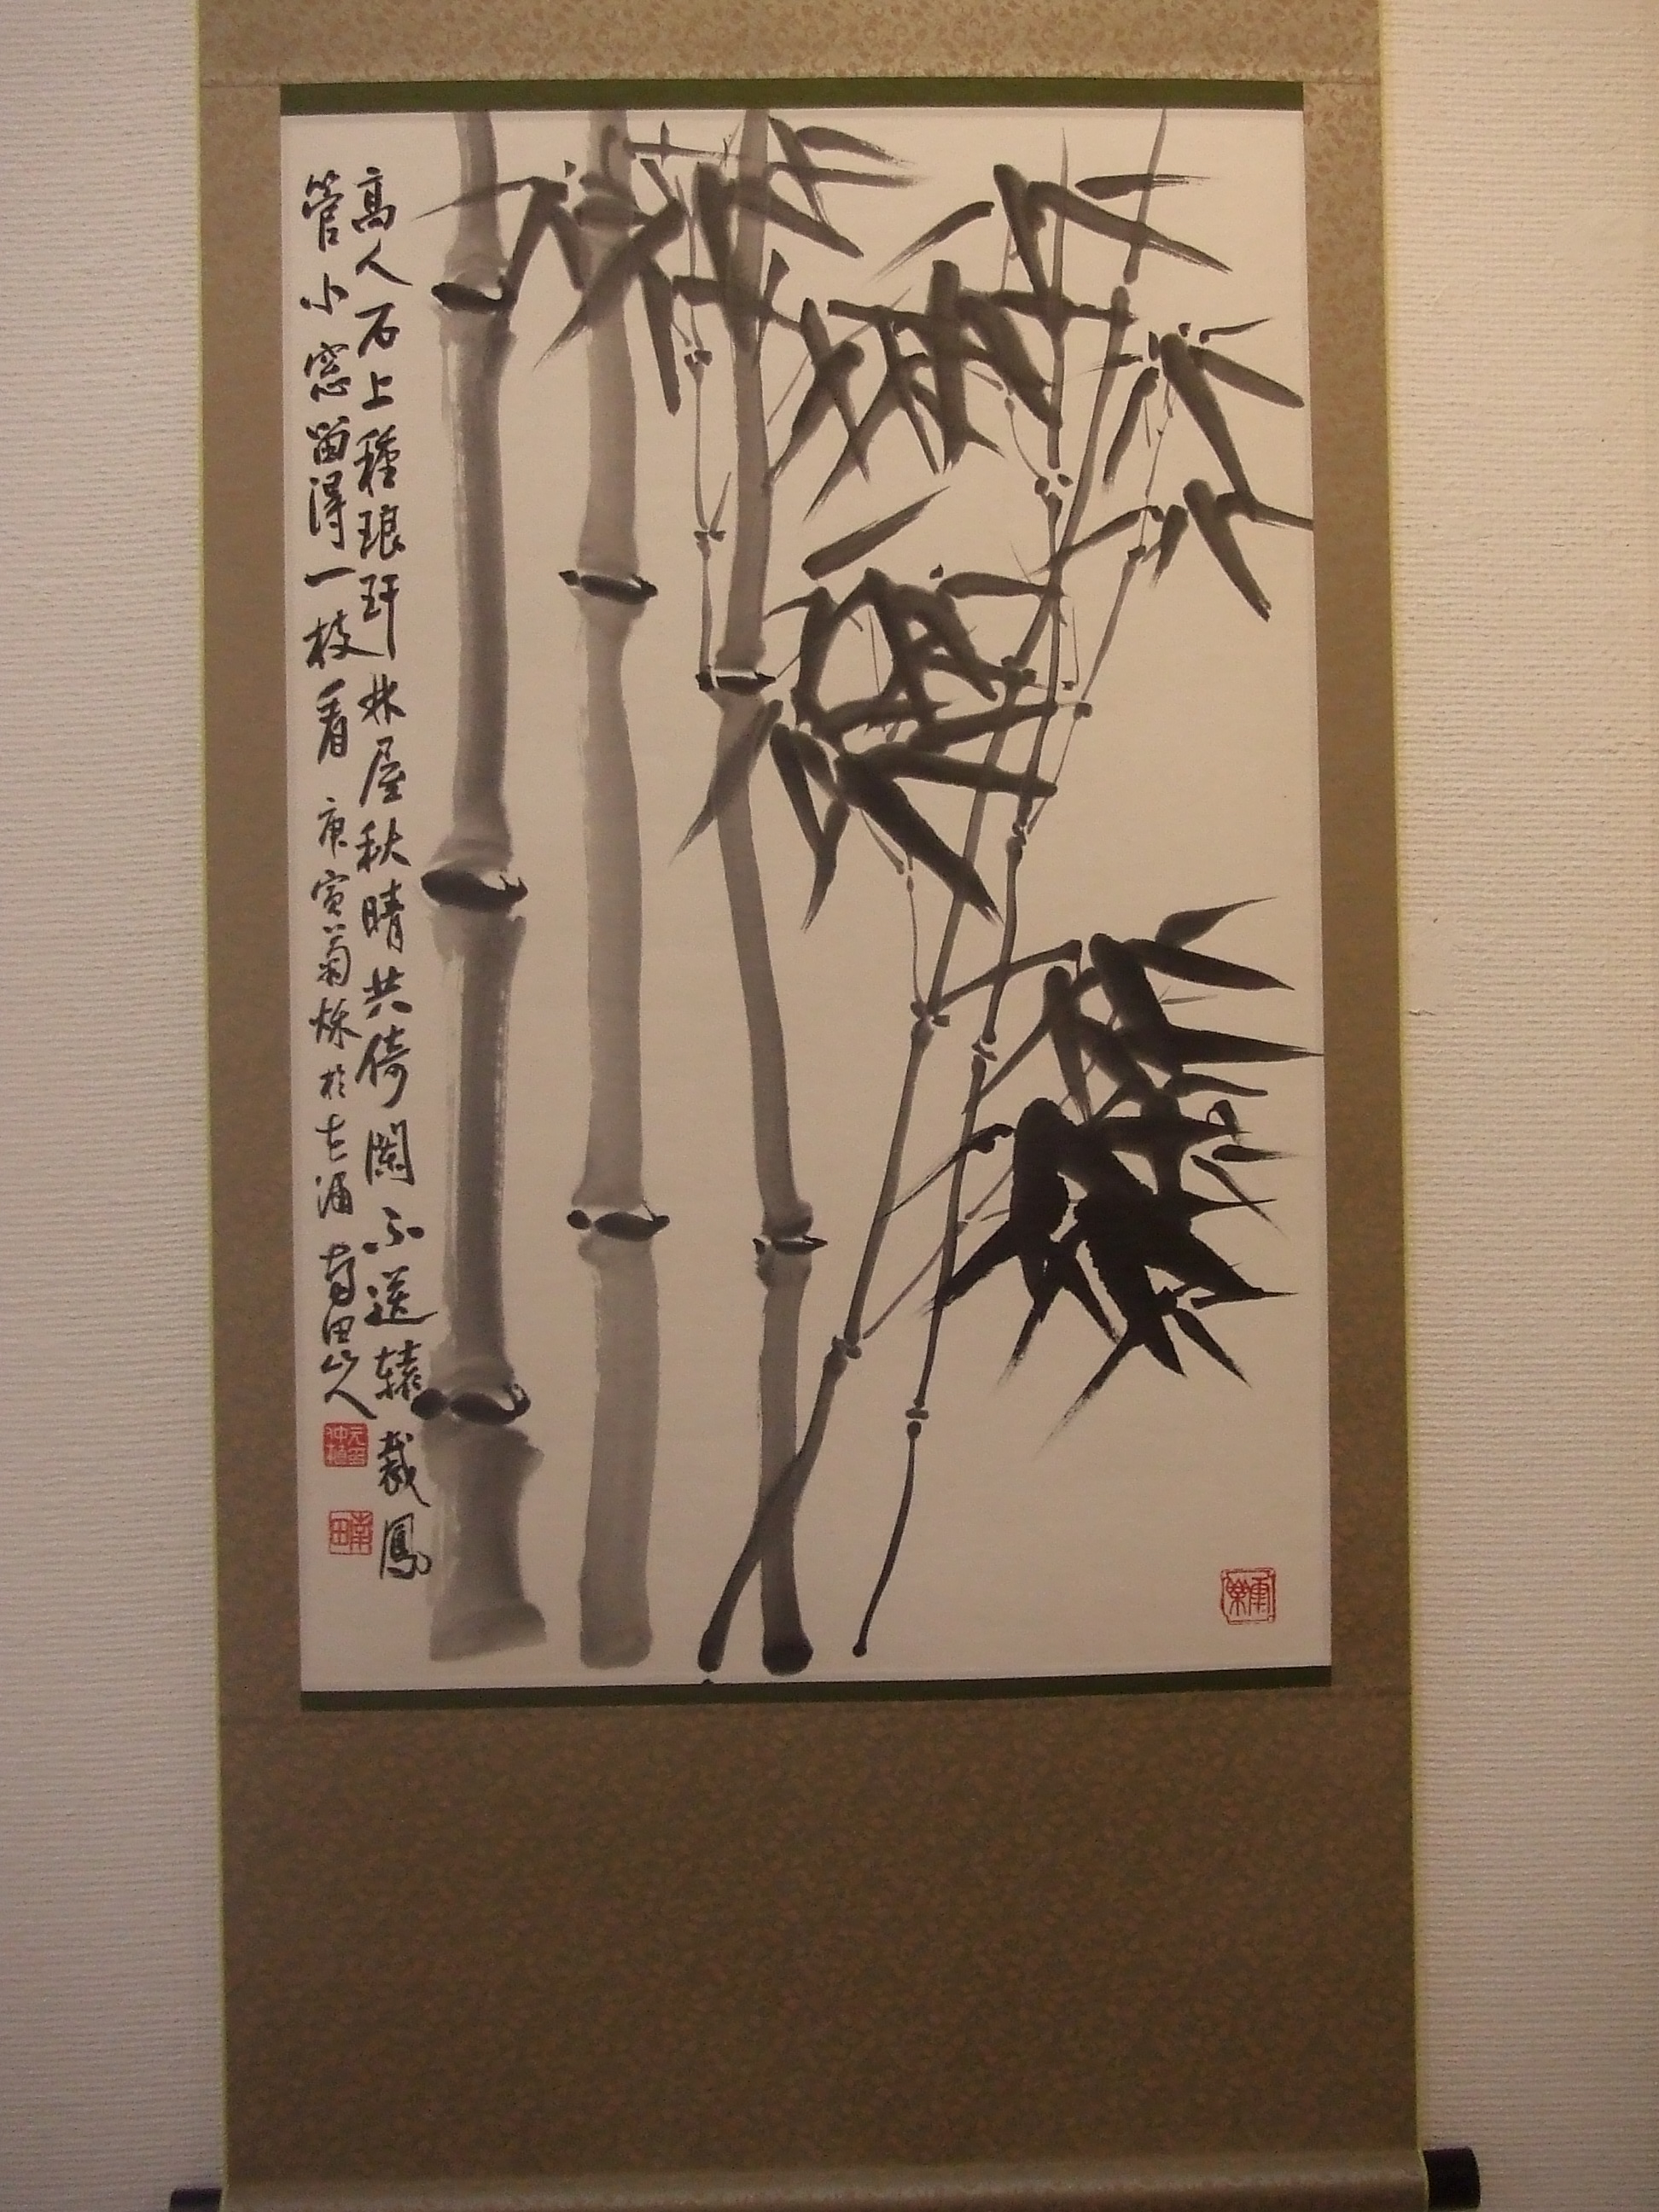 高人石上種琅玕林屋秋晴共倚闌不送轅裁鳳
管小窓留得一枝看 庚寅菊秋於 南田山人
南田